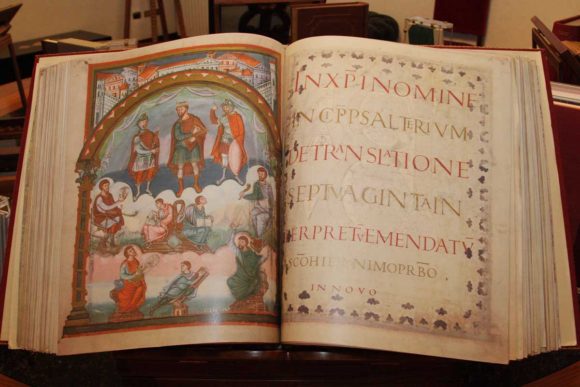 IN XP̄I NOMINE
INCIP̄ PSALTERIUM
DE TRANSLATIONE
SEPTUAGINTA IN
TERPRETŪ EMENDATŪ
A SC̄O HIERONIMO PRB̄O
IN NOVO